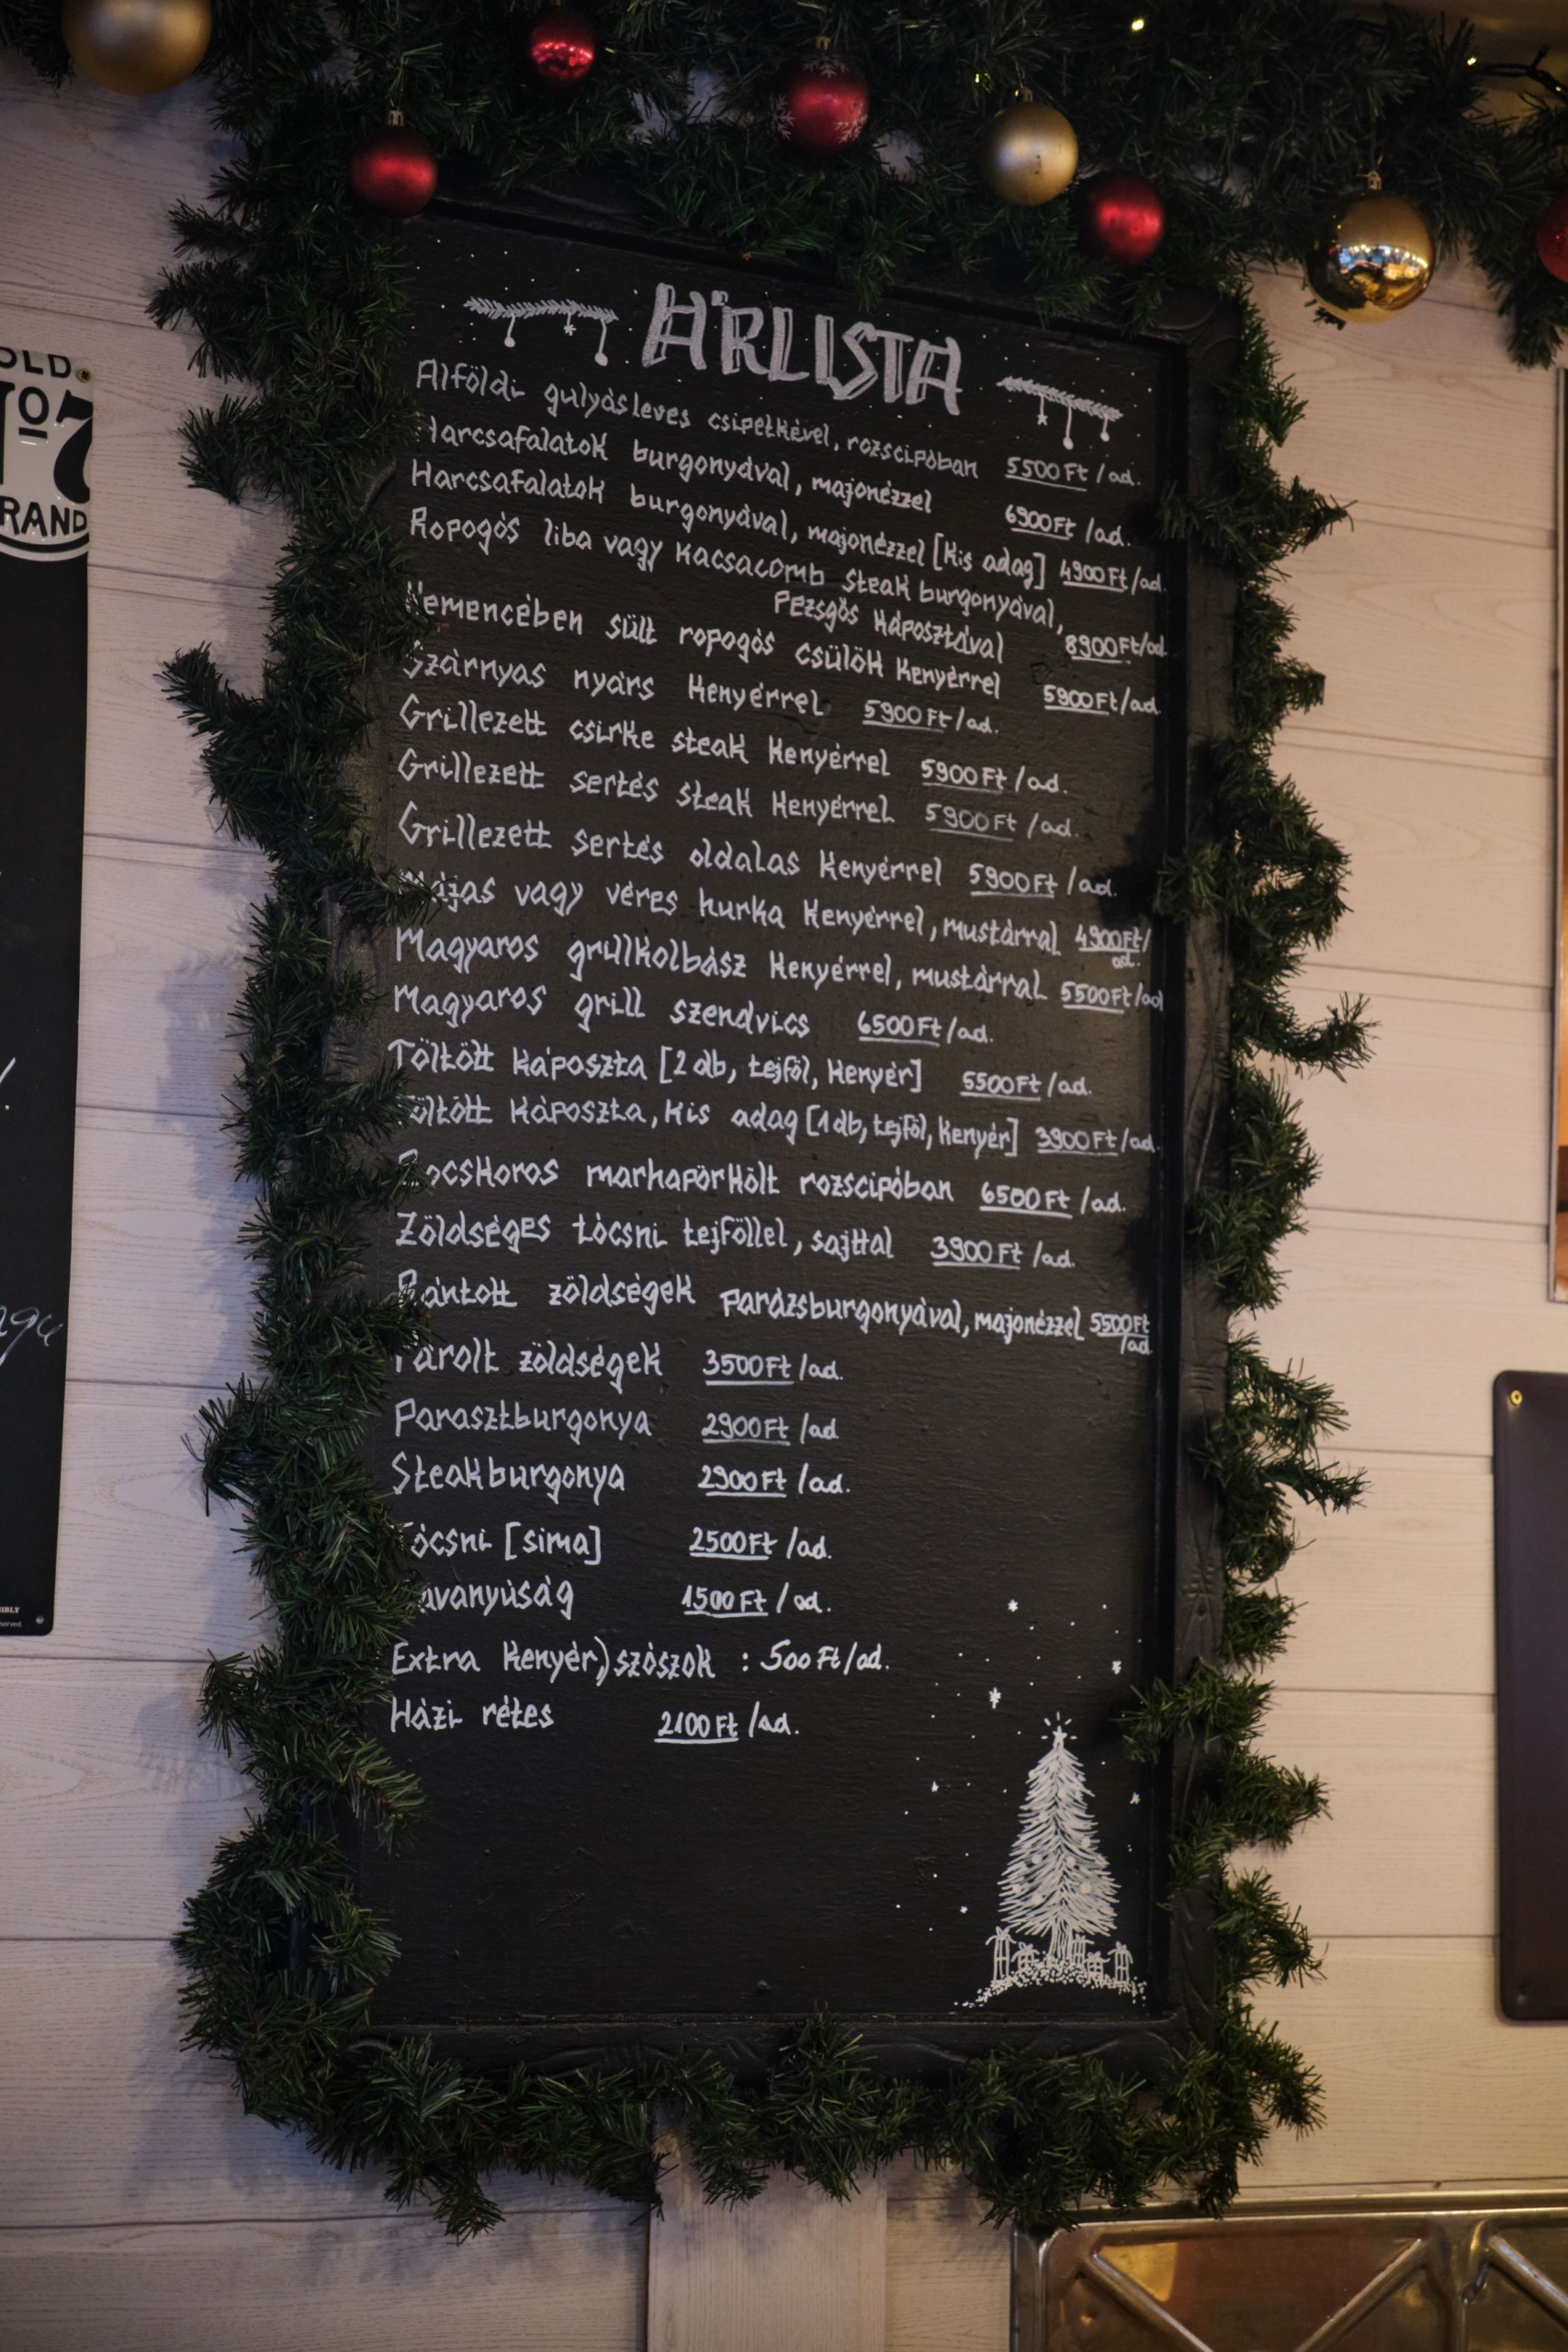 ÁRLISTA
Alföldi gulyásleves csipetkével, rozscipóban 5500 Ft/ad.
Harcsafalatok burgonyával, majonézzel 6900 Ft/ad.
Harcsafalatok burgonyával, majonézzel [kis adag] 4900 Ft/ad.
Ropogós liba vagy kacsacomb steak burgonyával,
pezsgős káposztával 8900 Ft/ad.
Kemencében sült ropogós csülök kenyérrel 5900 Ft/ad.
Szárnyas nyárs kenyérrel 5900 Ft/ad.
Grillezett csirke steak kenyérrel 5900 Ft/ad.
Grillezett sertés steak kenyérrel 5900 Ft/ad.
Grillezett sertés oldalas kenyérrel 5900 Ft/ad.
Májas vagy véres hurka kenyérrel, mustárral 4900 Ft/
ad.
Magyaros grillkolbász kenyérrel, mustárral 5500 Ft/ad
Magyaros grill szendvics 6500 Ft/ad.
Töltött káposzta [2 db, tejföl, kenyér] 5500 Ft/ad.
Töltött káposzta, kis adag [1 db, tejföl, kenyér] 3900 Ft/ad.
Bocskoros marhapörkölt rozscipóban 6500 Ft/ad.
Zöldséges tócsni tejföllel, sajttal 3900 Ft/ad.
Rántott zöldségek parázsburgonyával, majonézzel 5500 Ft
/ad
Párolt zöldségek 3500 Ft/ad.
Parasztburgonya 2900 Ft/ad
Steakburgonya 2900 Ft/ad.
Tócsni [sima] 2500 Ft/ad.
Savanyúság 1500 Ft/ad.
Extra kenyér) szószok : 500 Ft/ad.
Házi rétes 2100 Ft/ad.
OLD
No 7
RAND